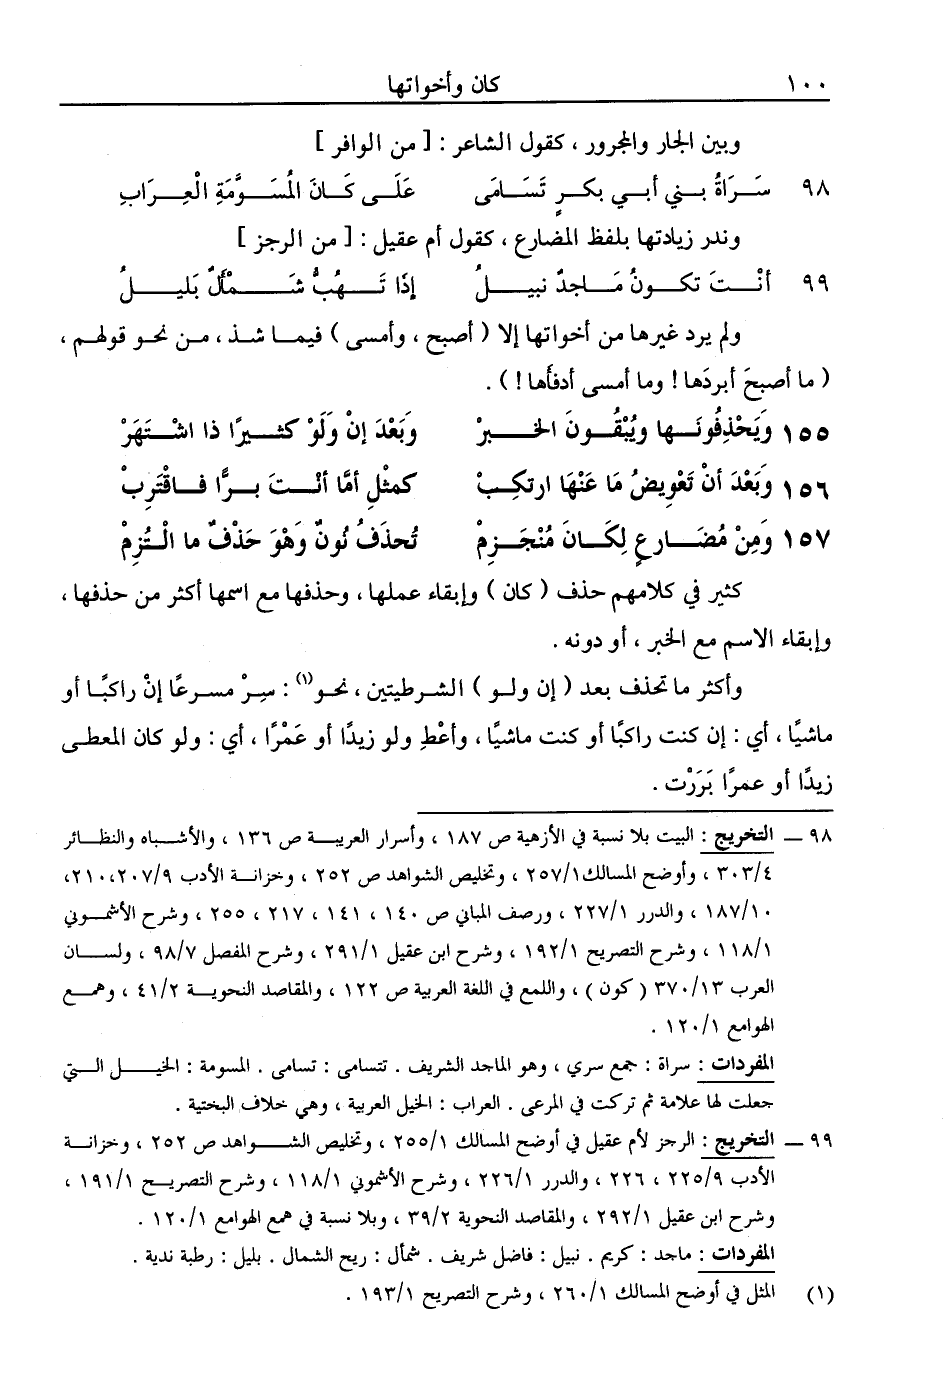 ١٠٠ كان وأخواتها
وبين الجار والمجرور ، كقول الشاعر : [ من الوافر ]
٩٨ سَرَاةُ بني أبي بكرٍ تَسَامَى عَلَى كَانَ المُسَوَّمَةِ الْعِرَابِ
وندر زيادتها بلفظ المضارع ، كقول أم عقيل : [ من الرجز ]
٩٩ أنْتَ تكونُ مَاجدٌ نبيلُ إذَا تَهُبُّ شَمْألٌ بَليلُ
ولم يرد غيرها من أخواتها إلا ( أصبح ، وأمسى ) فيما شذ ، من نحو قولهم ،
( ما أصبحَ أبردَها ! وما أمسى أدفأَها ! ) .
١٥٥ وَيَحْذِفُونَها ويُبْقُونَ الخبرْ وَبَعْدَ إنْ وَلَوْ كثيرًا ذا اشْتَهَرْ
١٥٦ وَبَعْدَ أنْ تَعْوِيضُ مَا عَنْهَا ارتكبْ كمثْلِ أمَّا أنْتَ برًّا فاقْتَرِبْ
١٥٧ وَمِنْ مُضَارعٍ لِكَانَ مُنْجَزِمْ تُحذَفُ نُونٌ وَهْوَ حَذْفٌ ما الْتُزِمْ
كثير في كلامهم حذف ( كان ) وإبقاء عملها ، وحذفها مع اسمها أكثر من حذفها ،
وإبقاء الاسم مع الخبر ، أو دونه .
وأكثر ما تحذف بعد ( إن ولو ) الشرطيتين ، نحو(١) : سِرْ مسرعًا إنْ راكبًا أو
ماشيًا ، أي : إن كنت راكبًا أو كنت ماشيًا ، وأعْطِ ولو زيدًا أو عَمْرًا ، أي : ولو كان المعطى
زيدًا أو عمرًا بَرَرْت .
٩٨ ــ التخريج : البيت بلا نسبة في الأزهية ص ١٨٧ ، وأسرار العربية ص ١٣٦ ، والأشباه والنظائر
٣٠٣/٤ ، وأوضح المسالك ٢٥٧/١ ، وتخليص الشواهد ص ٢٥٢ ، وخزانة الأدب ٢٠٧/٩، ٢١٠،
١٨٧/١٠ ، والدرر ٢٢٧/١ ، ورصف المباني ص ١٤٠ ، ١٤١ ، ٢١٧ ، ٢٥٥ ، وشرح الأشموني
١١٨/١ ، وشرح التصريح ١٩٢/١ ، وشرح ابن عقيل ٢٩١/١ ، وشرح المفصل ٩٨/٧ ، ولسان
العرب ٣٧٠/١٣ ( كون ) ، واللمع في اللغة العربية ص ١٢٢ ، والمقاصد النحوية ٤١/٢ ، وهمع
الهوامع ١٢٠/١ .
المفردات : سراة : جمع سري ، وهو الماجد الشريف . تتسامى : تسامى . المسومة : الخيل التي
جعلت لها علامة ثم تركت في المرعى . العراب : الخيل العربية ، وهي خلاف البختية .
٩٩ ــ التخريج : الرجز لأم عقيل في أوضح المسالك ٢٥٥/١ ، وتخليص الشواهد ص ٢٥٢ ، وخزانة
الأدب ٢٢٥/٩ ، ٢٢٦ ، والدرر ٢٢٦/١ ، وشرح الأشموني ١١٨/١ ، وشرح التصريح ١٩١/١ ،
وشرح ابن عقيل ٢٩٢/١ ، والمقاصد النحوية ٣٩/٢ ، وبلا نسبة في همع الهوامع ١٢٠/١ .
المفردات : ماجد : كريم . نبيل : فاضل شريف . شمأل : ريح الشمال . بليل : رطبة ندية .
(١) المثل في أوضح المسالك ٢٦٠/١ ، وشرح التصريح ١٩٣/١ .